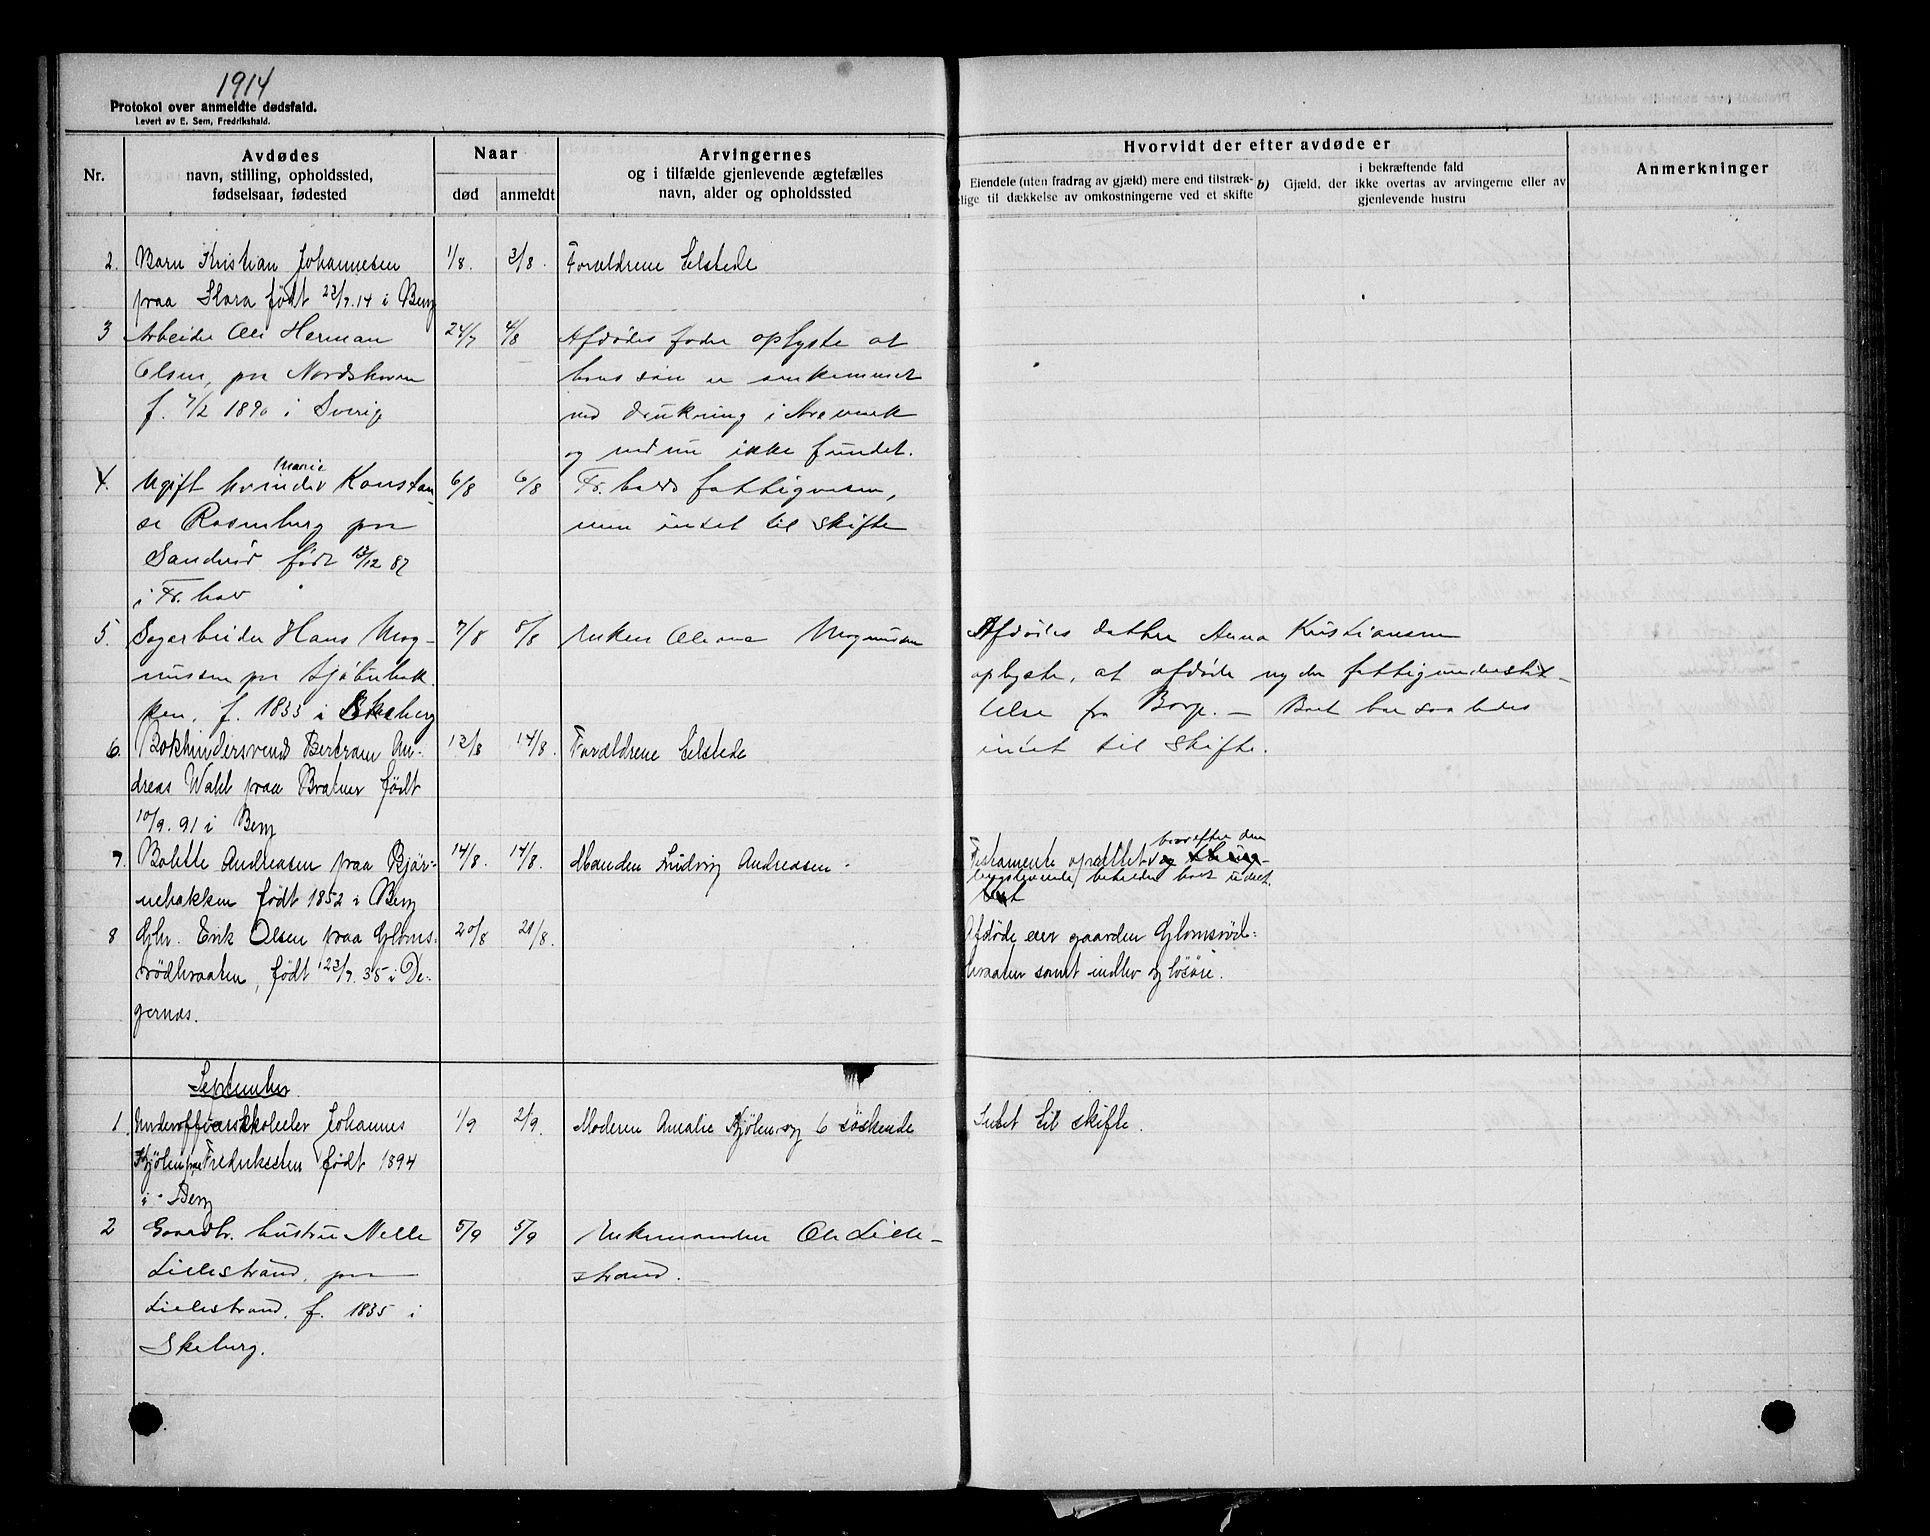 1914
Protokol over anmeldte dødsfald.
Levert av E. Sem, Fredrikshald.
Nr.
Avdødes
navn, stilling, opholdssted,
fødselsaar, fødested
Naar
død
anmeldt
Arvingernes
og i tilfælde gjenlevende ægtefælles
navn, alder og opholdssted
Hvorvidt der efter avdøde er
Eiendele (uten fradrag av gjæld) mere end tilstræk-
elige til dækkelse av omkostningerne ved et skifte
b)
i bekræftende fald
Gjæld, der ikke overtas av arvingerne eller av
gjenlevende hustru
Anmerkninger
2. Barn Kristian Johannesen 1/8. 3/8. Forældrene Eilstede
paa født 23/7.14 i Berg
3 Arbeider Ole Herman 24/7 4/8 Afdødes fader oplyste at
Olsen, paa Nordskoven hans søn er omkommet
f. 7/2 1890 i Sverig ved drukning i
og endnu ikke fundet.
Marie
4. Ugift kvinde Konstan- 6/8 6/8 Fr.halds fattigvesen,
se Rosenberg paa men intet til skifte
Sandvid født 12/12 87
i Fr.hald
5. Sagarbeider Hans Mag- 7/8 8/8 Enken Oleane Magnussen Afdødes datter Anna Kristiansen
nussen paa oplyste, at afdøde nyder fattigunderstøt-
ken, f. 1833 i Skeberg telse fra Borge. — Boet har saaledes
intet til skifte.
6. Bokbindersvend Bertram An- 12/8 14/8. Forældrene Eilstede
dreas Wahl paa Bratner født
10/9. 91 i Berg
hvorefter den
7. Bolette Andreasen paa Bjør- 14/8. 14/8. Manden Ludvig Andreasen. Testamente oprettet
nebakken født 1852 i Berg længstlevende beholder boet udelt.
8 Gbr. Erik Olsen paa Gloms- 20/8 20/8. Afdøde eier gaarden Glomsrød-
rødbraaten, født 23/7. 35 i De- braaten samt indbo og løsøre.
gernæs.
September
1. Underofficerskoleelev Johannes 1/9 2/9. Moderen Amalie Kjølen og 6 søskende Intet til skifte.
Kjølen paa Fredriksten født 1894
i Berg
2 Gaardbr. hustru Nelle 5/9 5/9 Enkemanden Ole Lille-
Lillestrand, paa strand.
Lillestrand, f. 1835 i
Skeberg.